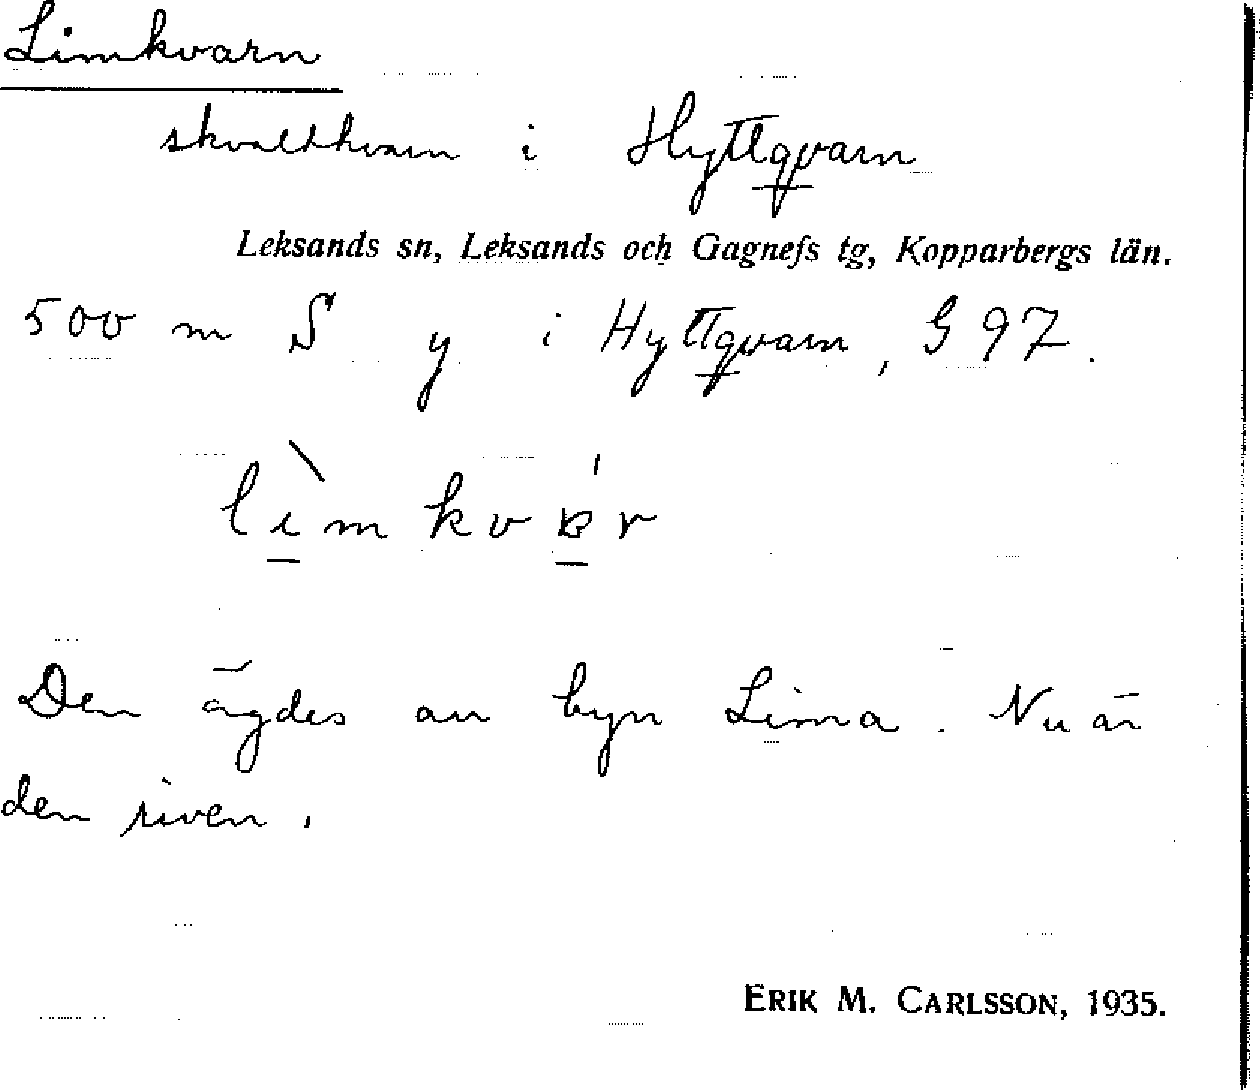 Limkvarn
skvaltkvarn i Hyttqvarn
Leksands sn, Leksands och Gagnefs tg, Kopparbergs län.
500 m S y i Hyttqvarn, G 97.
Den ägdes av byn Lima. Nu är
den riven.
ERIK M. CARLSSON, 1935.